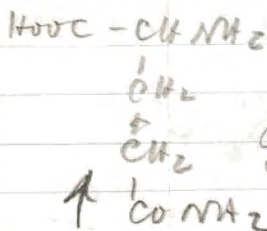 HOOC - CH NH2
CH2
CH2
CO NH2